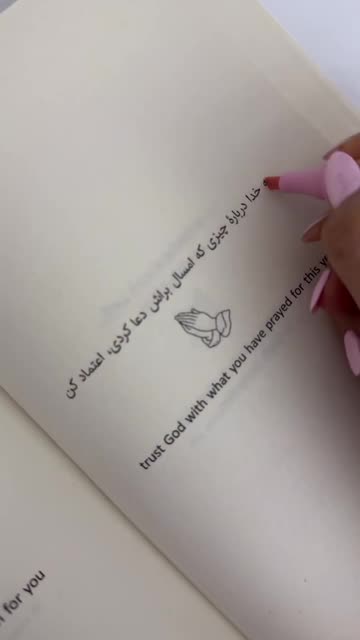 به خدا دربارهٔ چیزی که امسال براش دعا کردی، اعتماد کن
trust God with what you have prayed for this
for you